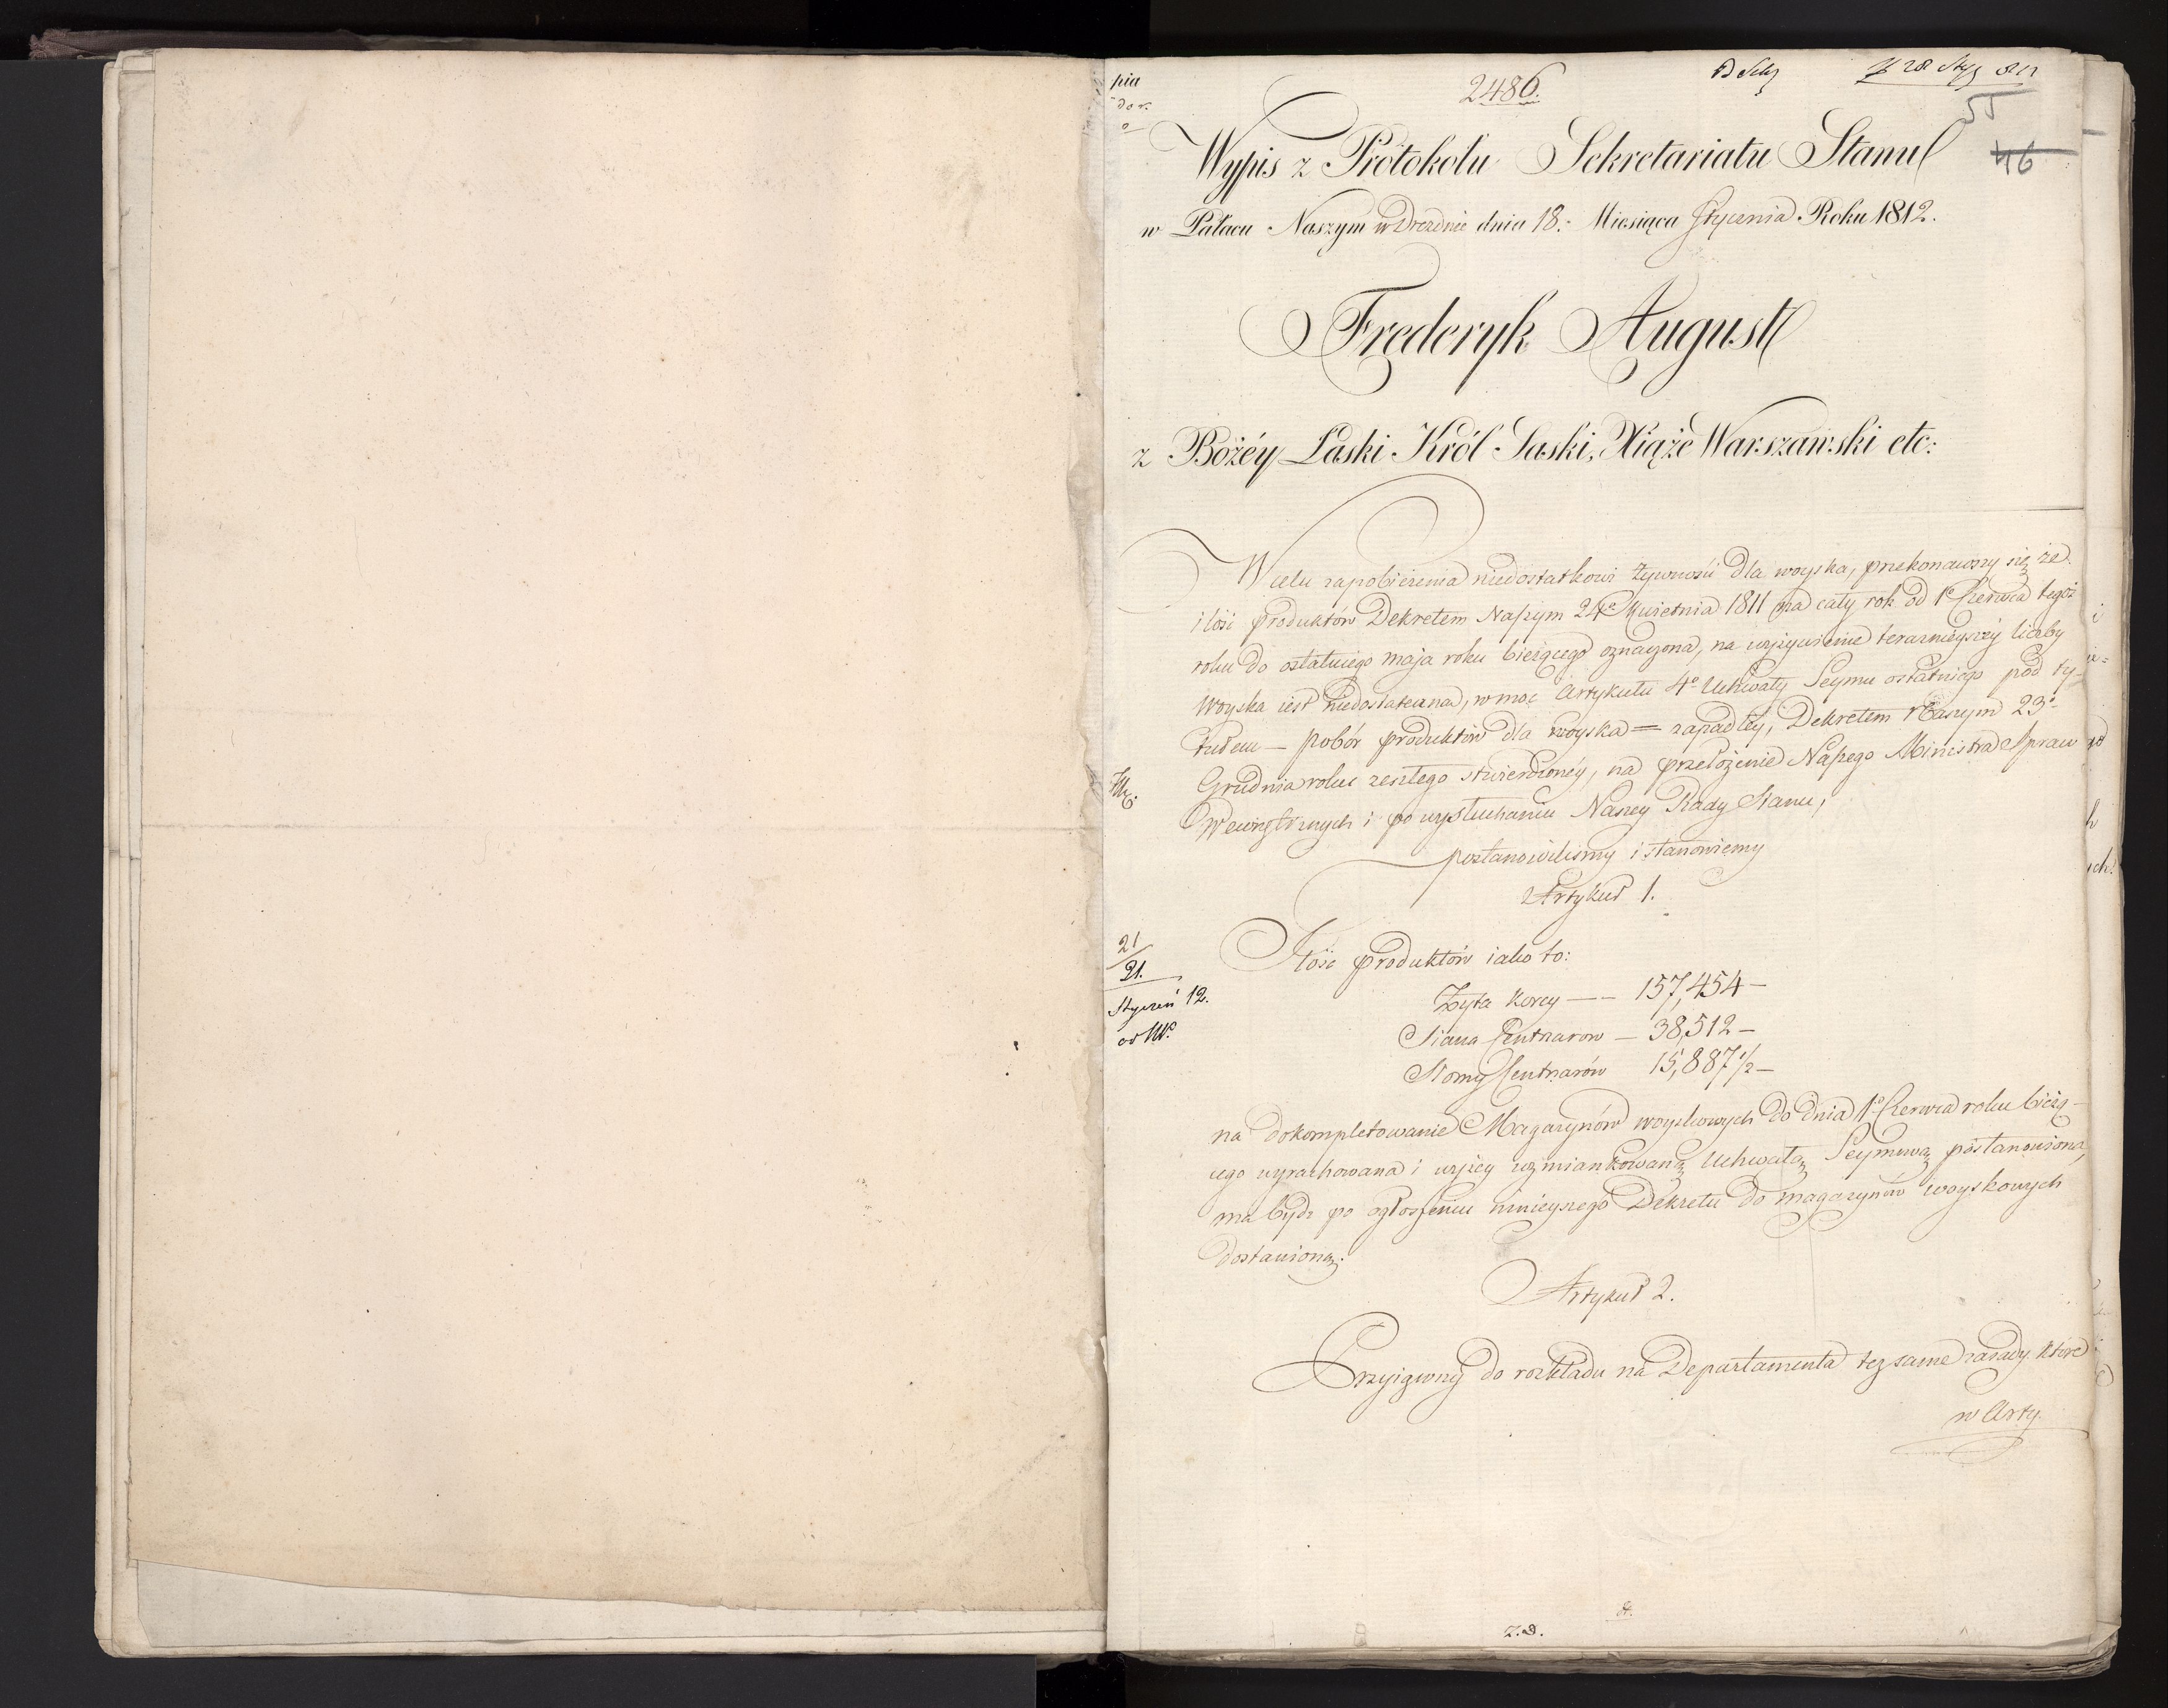 2486.
55
46
Wypis z Protokółu Sekretariatu Stanu
w Pałacu Naszym w Dreznie dnia 18. Miesiąca Stycznia Roku 1812.
Frederyk August
z Bożéy Łaski Król Saski, Xiąże Warszawski etc:
W celu zapobieżenia niedostatkowi żywności dla woyska, przekonawszy się że
ilość produktów Dekretem Naszym 24o Kwietnia 1811 na cały rok od 1o Czerwca tegoż
roku do ostatniego maja roku bieżącego oznaczona, na wyżywienie teraznieyszéy liczby
Woyska iest niedostateczna, w moc Artykułu 4o Uchwały Seymu ostatniego pod ty-
tułem — pobór produktów dla woyska = zapadłéy, Dekretem Naszym 23o
Grudnia roku zeszłego stwierdzonéy, na przełożenie Naszego Ministra Spraw
Wewnętrznych i po wysłuchaniu Naszey Rady Stanu,
postanowiliśmy i stanowiemy
Artykuł 1.
21/21.
Styczeń 12.
Ilość produktów iako to:
Żyta korcy — 157,454 —
Siana Centnarow — 38,512 —
Słomy Centnarów 15,887 1/2 —
na dokompletowanie Magazynów woyskowych do dnia 1o Czerwca roku bieżą-
cego wyrachowana i wyżey wzmiankowaną Uchwałą Seymową postanowiona,
ma bydź po ogłoszeniu ninieyszego Dekretu do magazynów woyskowych
dostawioną.
Artykuł 2.
Przyigwszy do rozkładu na Departamenta też same zasady które
w Arty.